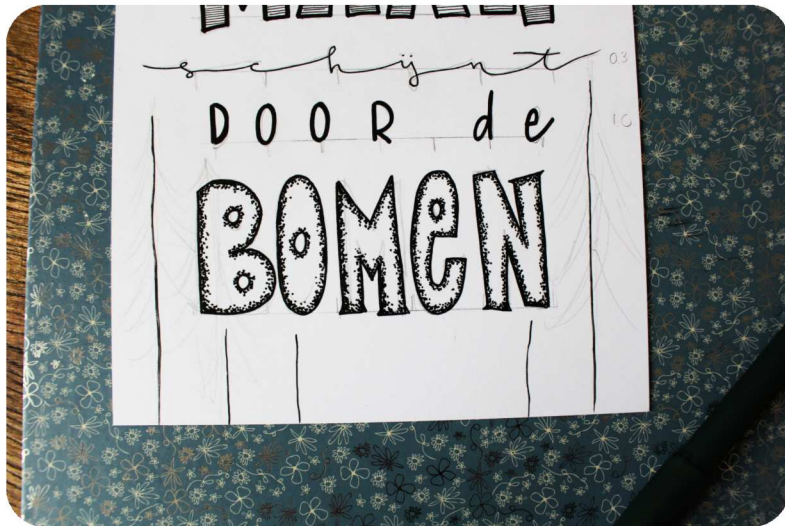 schijnt
0.3
DOOR de
1.0
BOMEN